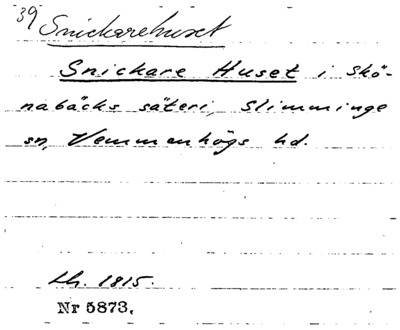 39 Snickarehuset
Snickare Huset i Skö-
nabäcks säteri, Slimminge
sn, Vemmenhögs hd.
Lh. 1815.
Nr 5873.